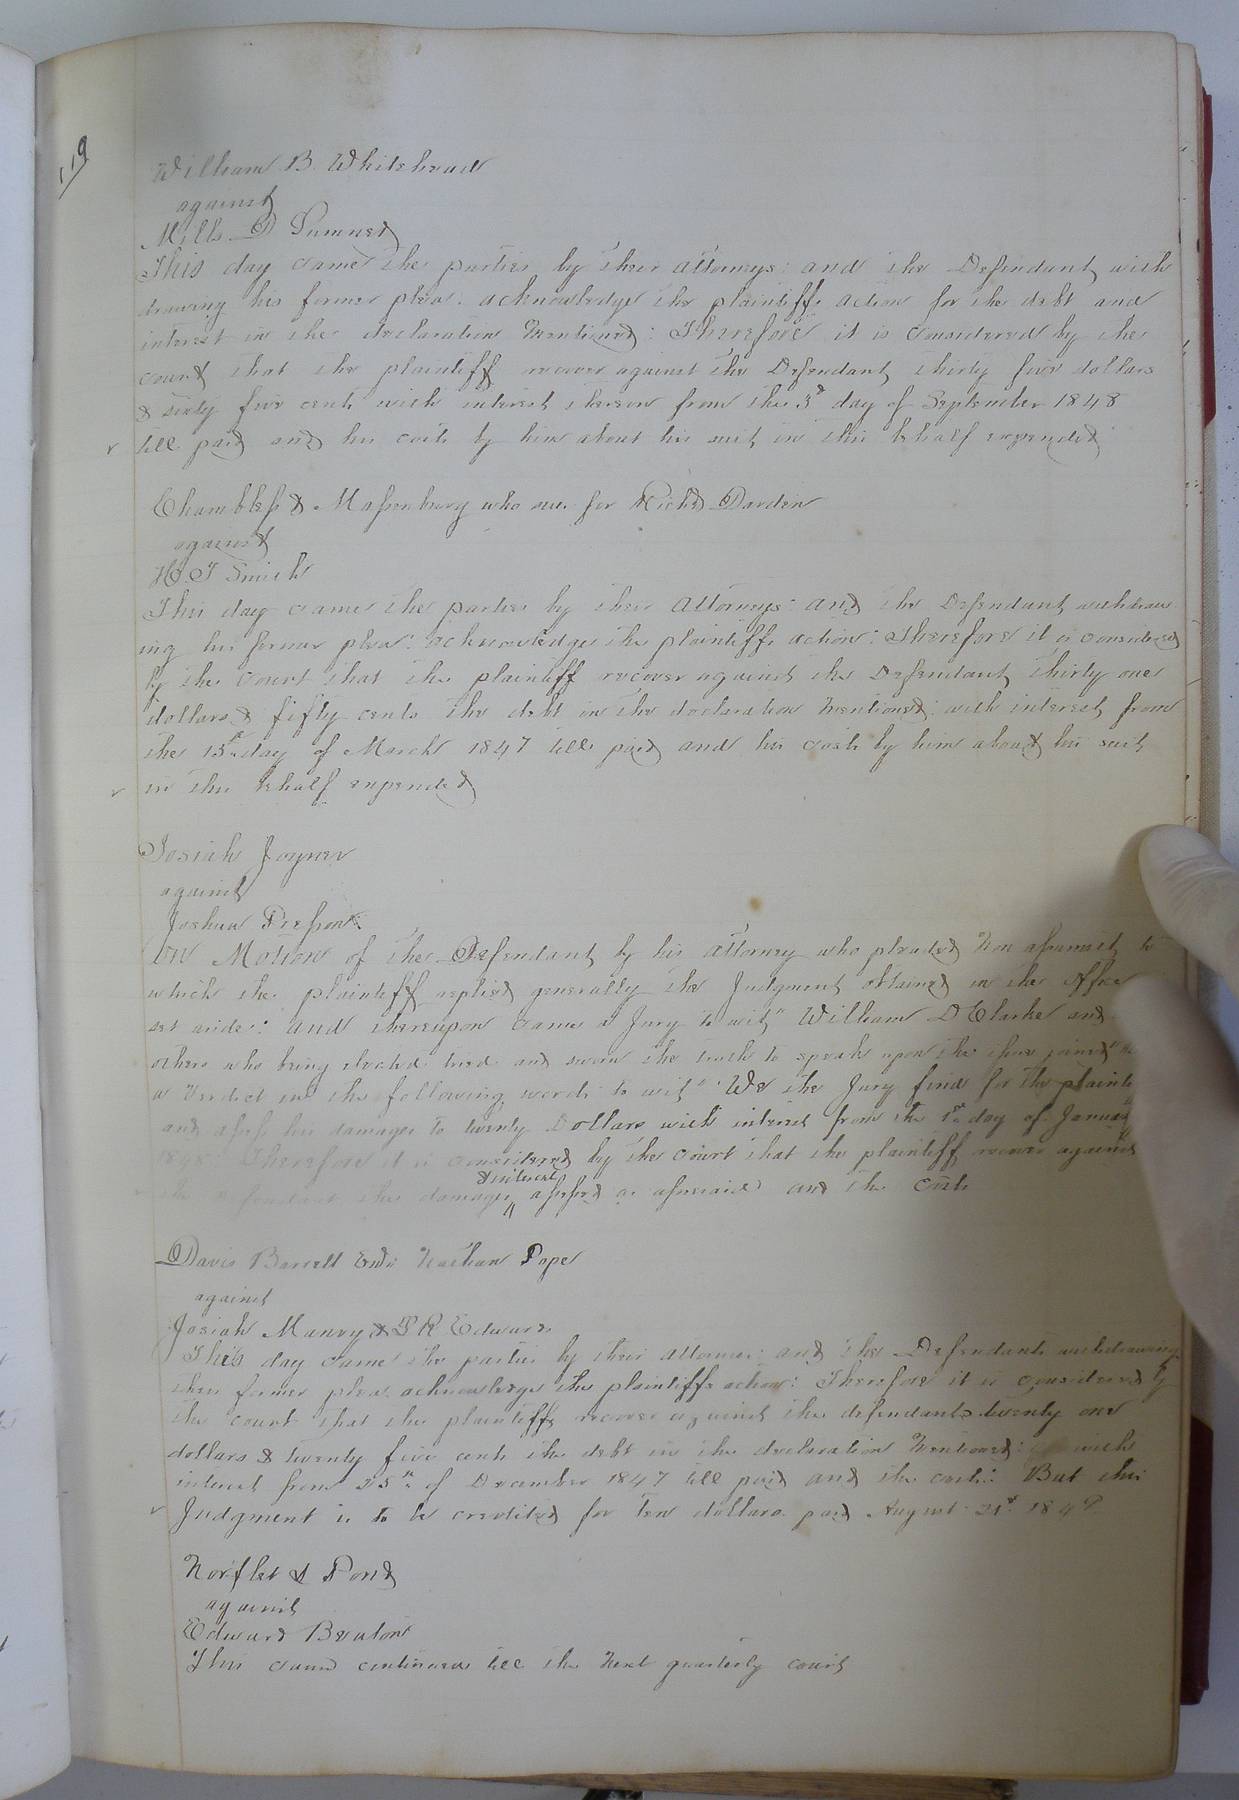 119
William B. Whitehead
against
Mills D Sumner
This day came the parties by their attorneys: and the Defendant with
drawing his former plea: acknowledge the plaintiffs action for the debt and
interest in the declaration mentioned: Therefore it is considered by the
court that the plaintiff recover against the Defendant thirty five dollars
& sixty five cents with interest thereon from the 3d day of September 1848
till paid and his costs by him about his suit in this behalf expended
Chambless & Massenburg who sue for Richd Darden
against
H. T Smith
This day came the parties by their attorneys: and the Defendant withdraw
ing his former plea: acknowledge the plaintiffs action: Therefore it is considered
by the court that the plaintiff recover against the Defendant thirty one
dollars & fifty cents the debt in the declaration mentioned: with interest from
the 15th day of March 1847 till paid and his costs by him about his suit
in this behalf expended
Josiah Joyner
against
Joshua Pressont
On Motion of the Defendant by his attorney who pleaded Non assumsit to
which the plaintiff replied generally the Judgment obtained in the Office
set aside: and thereupon came a Jury to wit" William D Clarke and
others who being elected tried and sworn the truth to speak upon the issue joined"
a Verdict in the following words to wit" We the Jury find for the plainti
and assess his damages to twenty Dollars with interest from the 1st day of Januar
1848 Therefore it is considered by the court that the plaintiff recover against
the defendant the damages & interest assessed as aforesaid and the costs
Davis Barrett Endr Nathan Pope
against
Josiah Manry & P R Edwards
This day came the parties by their attornies: and the Defendants withdrawing
their former plea acknowledge the plaintiffs action: Therefore it is considered by
the court that the plaintiffs recover against the defendants twenty one
dollars & twenty five cents the debt in the declaration mentioned: with
interest from 25th of December 1847 till paid and the costs: But this
Judgment is to be credited for ten dollars paid August 21st 1849
Norflet & Pond
against
Edward Beaton
This cause continued till the next quarterly court